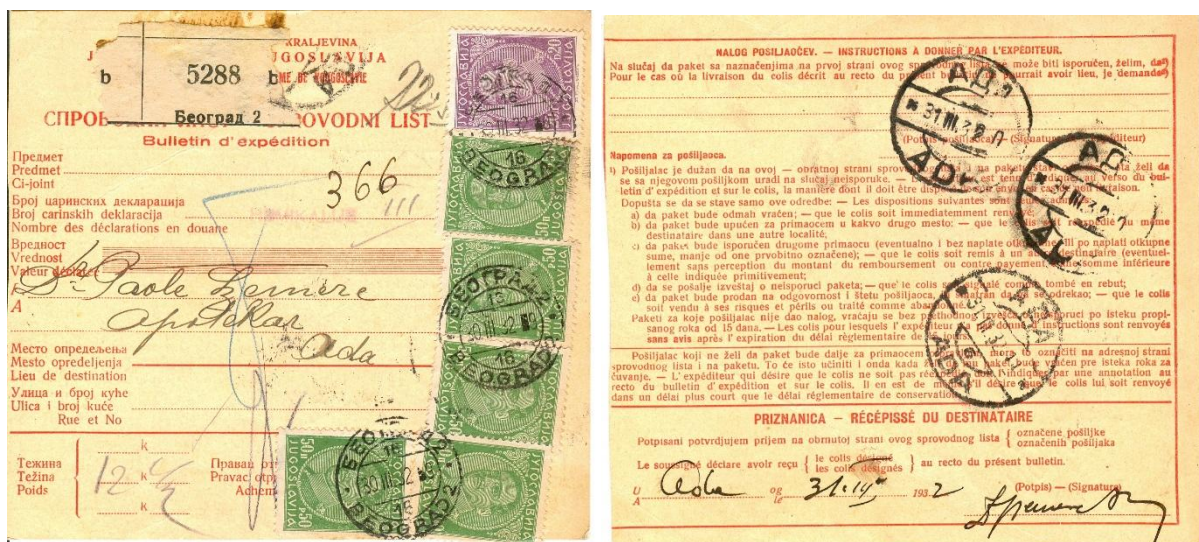 KRALJEVINA
JUGOSLAVIJA
b 5288 b
Београд 2
SPROVODNI LIST
Bulletin d'expédition
Предмет
Predmet
Ci-joint
366
Број царинских декларација
Broj carinskih deklaracija
Nombre des déclarations en douane
III
Вредност
Vrednost
Valeur déclarée
A
Ada
Место опредељења
Mesto opredeljenja
Lieu de destination
Улица и број куће
Ulica i broj kuće
Rue et No
k
Тежина
Težina
Poids
12
k
Правац
Pravac
ЈУГОСЛАВИЈА
JUGOSLAVIJA
БЕОГРАД 2
BEOGRAD 2
30 III 32
16
NALOG POŠILJAOČEV. — INSTRUCTIONS A DONNER PAR L'EXPÉDITEUR.
Na slučaj da paket sa naznačenjima na prvoj strani ovog sprovodnog lista ne može biti isporučen, želim, da¹)
Pour le cas où la livraison du colis décrit au recto du présent bulletin ne pourrait avoir lieu, je demande¹)
(Potpis pošiljaoca) — (Signature de l'expéditeur)
Napomena za pošiljaoca.
¹) Pošiljalac je dužan da na ovoj — obratnoj strani sprovodnog
se sa njegovom pošiljkom uradi na slučaj neisporuke.
letin d'expédition et sur le colis, la manière dont il doit être disposé
Dopušta se da se stave samo ove odredbe: — Les dispositions suivantes
a) da paket bude odmah vraćen; — que le colis soit immédiatement renvoyé;
b) da paket bude upućen za primaocem u kakvo drugo mesto: — que le colis soit réexpédié au même
destinataire dans une autre localité;
c) da paket bude isporučen drugome primaocu (eventualno i bez naplate otkupne ili po naplati otkupne
sume, manje od one prvobitno označene); — que le colis soit remis à un autre destinataire (eventuel-
lement sans perception du montant du remboursement ou contre payement d'une somme inférieure
à celle indiquée primitivement;
d) da se pošalje izveštaj o neisporuci paketa; — que le colis soit signalé comme tombé en rebut;
e) da paket bude prodan na odgovornost i štetu pošiljaoca, ili smatran da se odrekao; — que le colis
soit vendu à ses risques et périls ou traité comme abandonné.
Paketi za koje pošiljalac nije dao nalog, vraćaju se bez prethodnog izvešća o neisporuci po isteku propi-
sanog roka od 15 dana. — Les colis pour lesquels l'expéditeur n'a pas donné d'instructions sont renvoyés
sans avis après l'expiration du délai réglementaire de
Pošiljalac koji ne želi da paket bude dalje za primaocem otpravljen, mora to označiti na adresnoj strani
sprovodnog lista i na paketu. To će isto učiniti i onda kada želi da mu paket bude vraćen pre isteka roka za
čuvanje. — L'expéditeur qui désire que le colis ne soit pas réexpédié doit l'indiquer par une annotation au
recto du bulletin d'expédition et sur le colis. Il en est de même s'il désire que le colis lui soit renvoyé
dans un délai plus court que le délai réglementaire de conservation.
АДА
ADA
31.III.32
PRIZNANICA — RÉCÉPISSÉ DU DESTINATAIRE
Potpisani potvrdjujem prijem na obrnutoj strani ovog sprovodnog lista { označene pošiljke
označenih pošiljaka
Le soussigné déclare avoir reçu { le colis désigné
les colis désignés } au recto du présent bulletin.
U Ada og 1932 (Potpis) — (Signature)
A le